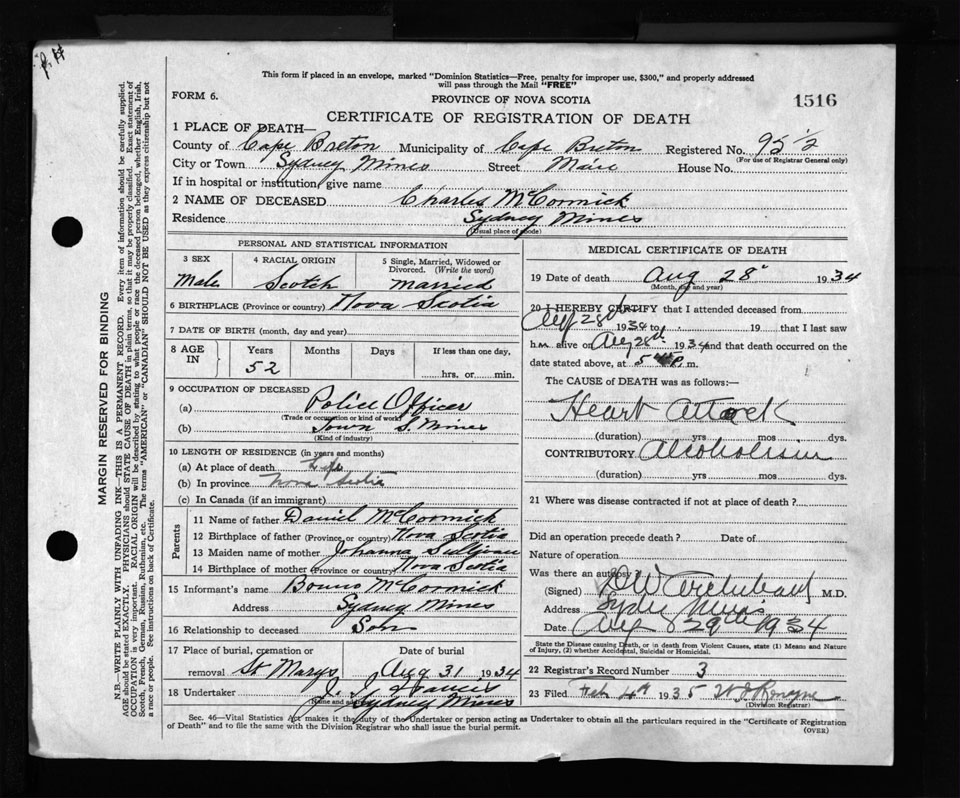 P. H
This form if placed in an envelope, marked "Dominion Statistics—Free, penalty for improper use, $300," and properly addressed
will pass through the Mail "FREE"
FORM 6.
PROVINCE OF NOVA SCOTIA
1516
CERTIFICATE OF REGISTRATION OF DEATH
1 PLACE OF DEATH—
County of Cape Breton Municipality of Cape Breton Registered No. 95½
(For use of Registrar General only)
City or Town Sydney Mines Street Main House No.
If in hospital or institution, give name
2 NAME OF DECEASED Charles McCormick
Residence Sydney Mines
(Usual place of abode)
PERSONAL AND STATISTICAL INFORMATION
3 SEX
Male
4 RACIAL ORIGIN
Scotch
5 Single, Married, Widowed or
Divorced. (Write the word)
Married
6 BIRTHPLACE (Province or country) Nova Scotia
7 DATE OF BIRTH (month, day and year)
8 AGE IN
Years
52
Months
Days
If less than one day,
hrs. or min.
9 OCCUPATION OF DECEASED
(a) Police Officer
(Trade or occupation or kind of work)
(b) Town S. Mines
(Kind of industry)
10 LENGTH OF RESIDENCE (in years and months)
(a) At place of death Life
(b) In province Nova Scotia
(c) In Canada (if an immigrant)
Parents
11 Name of father Daniel McCormick
12 Birthplace of father (Province or country) Nova Scotia
13 Maiden name of mother Johanna Sullivan
14 Birthplace of mother (Province or country) Nova Scotia
15 Informant's name McCormick
Address Sydney Mines
16 Relationship to deceased Son
17 Place of burial, cremation or
removal St Marys
Date of burial
Aug 31 1934
18 Undertaker J. Francis
Name and address Sydney Mines
MEDICAL CERTIFICATE OF DEATH
19 Date of death Aug 28" 1934
(Month, day and year)
20 I HEREBY CERTIFY that I attended deceased from
Aug 28th 1934 to 19 that I last saw
h.m alive on Aug 28th 1934 and that death occurred on the
date stated above, at 5 P. m.
The CAUSE of DEATH was as follows:—
Heart Attack
(duration) yrs mos dys.
CONTRIBUTORY Alcoholism
(duration) yrs mos dys.
21 Where was disease contracted if not at place of death?
Did an operation precede death? Date of
Nature of operation
Was there an autopsy?
(Signed) D W Archibald M.D.
Address Sydney Mines
Date Aug 29th 1934
State the Disease causing Death, or in death from Violent Causes, state (1) Means and
Nature of Injury, (2) whether Accidental, Suicidal or Homicidal.
22 Registrar's Record Number 3
23 Filed Feb 4th 1935
(Division Registrar)
Sec. 46—Vital Statistics Act makes it the duty of the Undertaker or person acting as Undertaker to obtain all the particulars required in the "Certificate of Registration
of Death" and to file the same with the Division Registrar who shall issue the burial permit.
(OVER)
MARGIN RESERVED FOR BINDING
N.B.—WRITE PLAINLY WITH UNFADING INK—THIS IS A PERMANENT RECORD. Every item of information should be carefully supplied.
AGE should be stated EXACTLY. PHYSICIANS should STATE CAUSE OF DEATH in plain terms, so that it may be properly classified. Exact statement of
OCCUPATION is very important. RACIAL ORIGIN will be described by stating to what people or race the deceased person belonged, whether English, Irish,
Scotch, French, German, Russian, Ruthenian, etc. The terms "AMERICAN" or "CANADIAN" SHOULD NOT BE USED as they express citizenship but not
a race or people. See instructions on back of Certificate.